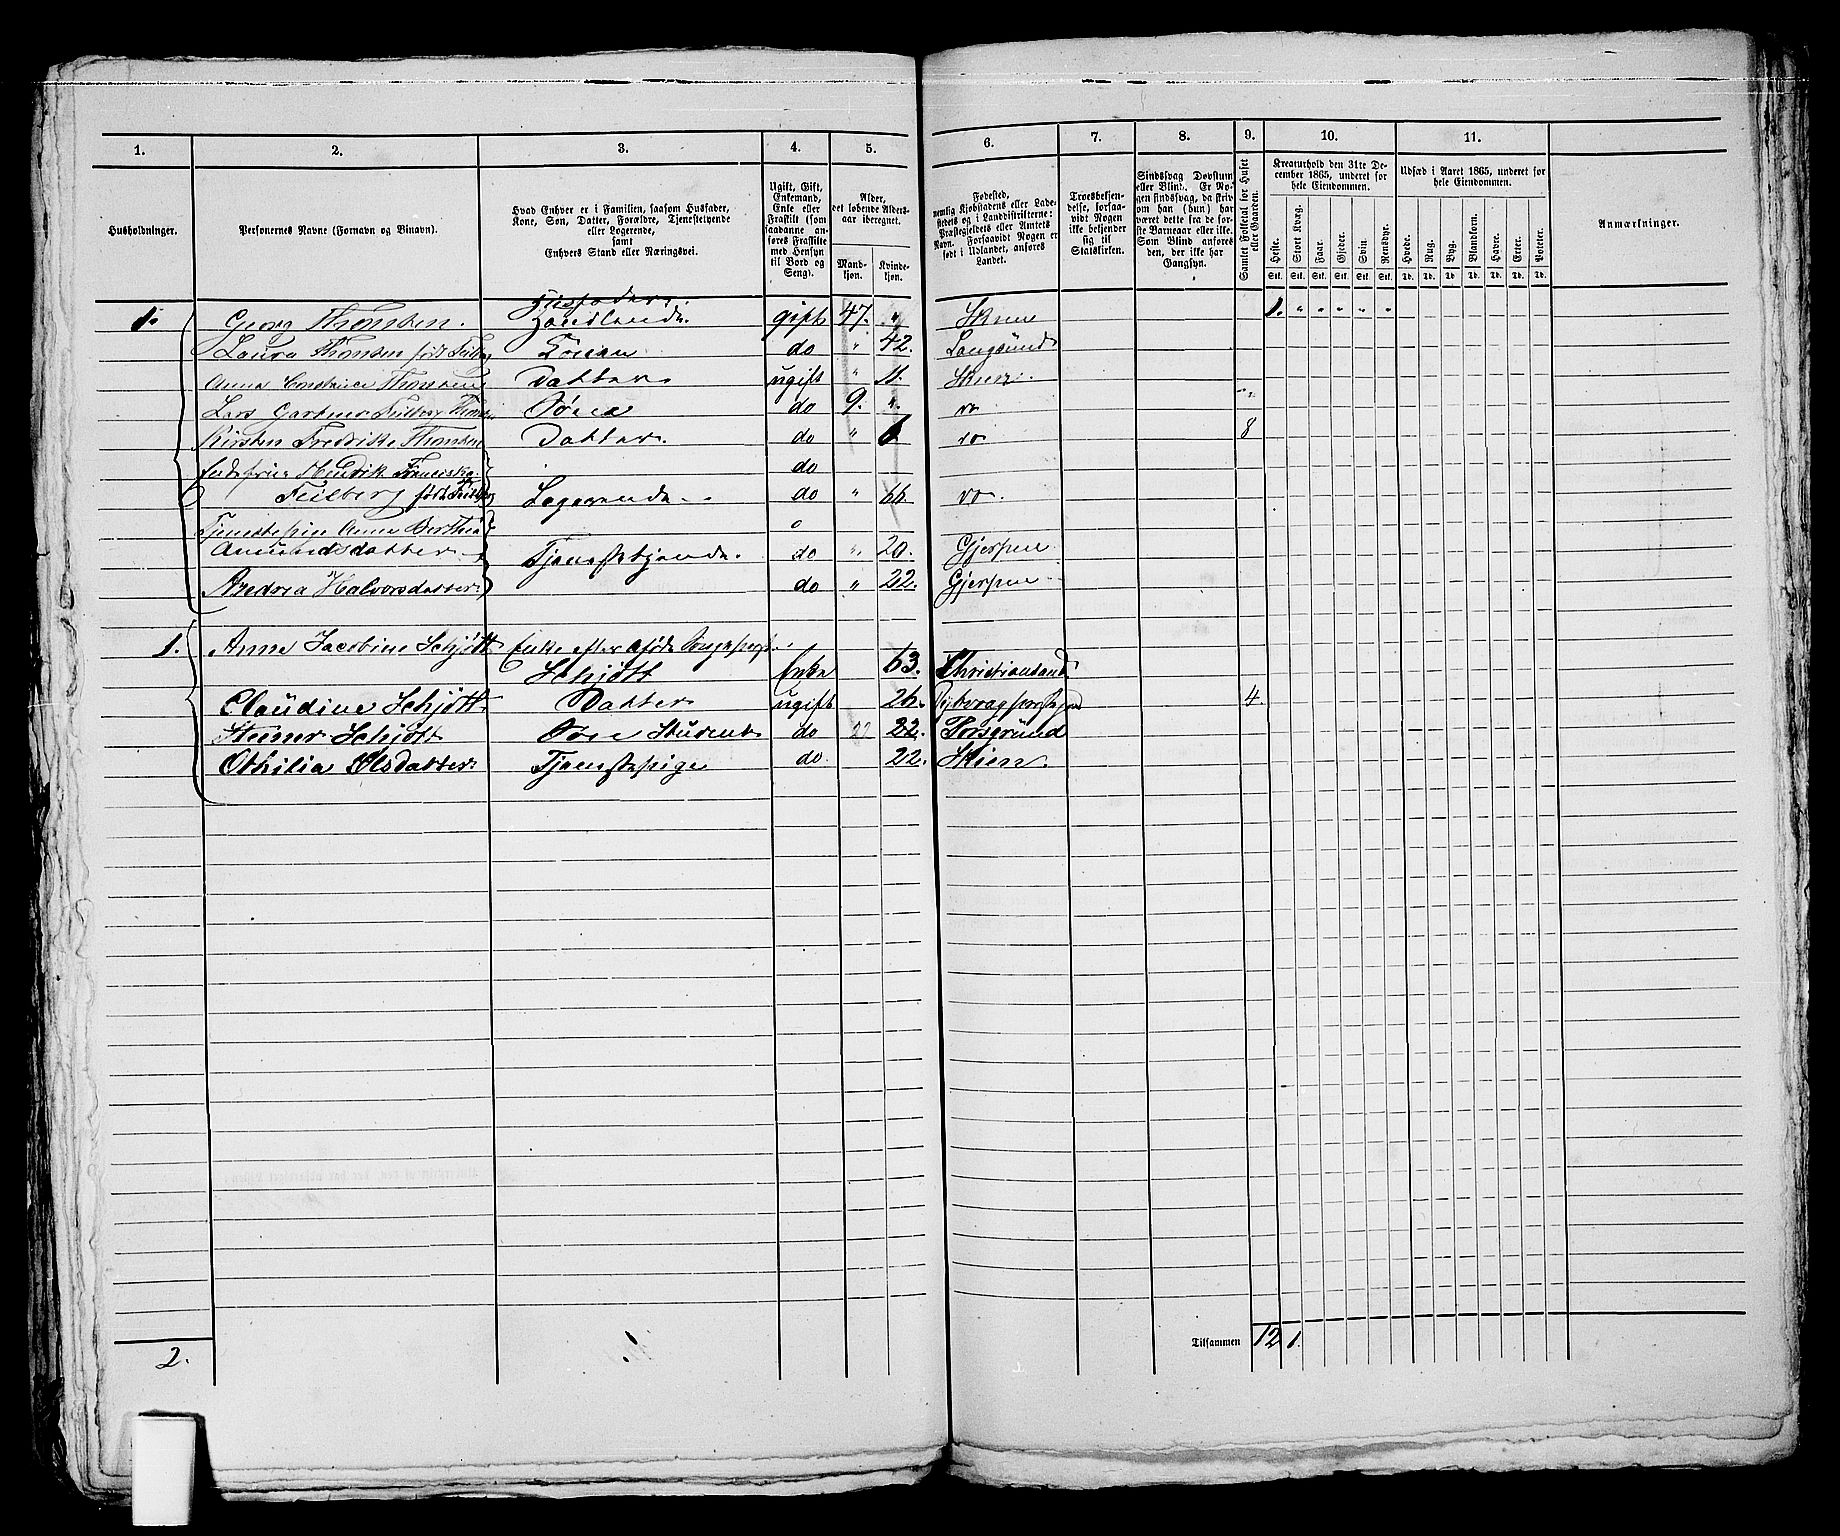 1. 2. 3. 4. 5. 6. 7. 8. 9. 10. 11.
Husholdninger.
Personernes Navne (Fornavn og Binavn).
Hvad Enhver er i Familien, saasom Husfader,
Kone, Søn, Datter, Forældre, Tjenestetyende
eller Logerende,
samt
Enhvers Stand eller Næringsvei.
Ugift, Gift,
Enkemand,
Enke eller
Fraskilt (som
saadanne an-
føres Fraskilte
med Hensyn
til Bord og
Seng).
Alder,
det løbende Alders-
aar iberegnet.
Mand-
kjøn.
Kvinde-
kjøn.
Fødested,
nemlig Kjøbstadens eller Lade-
stedets og i Landdistrikterne:
Præstegjeldets eller Amtets
Navn. Forsaavidt Nogen er
født i Udlandet, anføres
Landet.
Troesbekjen-
delse, forsaa-
vidt Nogen
ikke bekjender
sig til
Statskirken.
Sindssvag Døvstum
eller Blind. Er No-
gen sindssvag, da skriv
som han (hun) har
været dette fra de før-
ste Barneaar eller ikke.
Som Blind anføres
den, der ikke har
Gangsyn.
Samlet Folketal for Huset
eller Gaarden.
Kreaturhold den 31te De-
cember 1865, underet for
hele Eiendommen.
Heste. Stort Kvæg. Faar. Gjeder. Svin. Rensdyr.
Stk. Stk. Stk. Stk. Stk. Stk.
Udsæd i Aaret 1865, underet for
hele Eiendommen.
Hvede. Rug. Byg. Blandkorn. Havre. Erter. Poteter.
Td. Td. Td. Td. Td. Td. Td.
Anmærkninger.
1. Georg Thomsen. Husfader. Handlende. gift 47. " Skien 1. " " " " "
Laura Thomsen født Feilberg Konen do " 42. Langesund
Anna Constance Thomsen Datter ugift " 11. Skien
Lars Gartner Feilberg Thomsen Sønn do 9. " do
Kirsten Fredrikke Thomsen Datter do " 6 do 8
Hendrik Franciska do
Feilberg født Feilberg Logerende do " 66 do
Tjenestepige Anne Berthea
Amundsdatter Tjenestetyende do " 20. Gjerpen
Andrea Halvorsdatter do " 22. Gjerpen
1. Anne Jacobine Schjøtt Enke efter afdøde Sogneprest
Schjøtt Enke 63. Christiansand
Claudine Schjøtt Datter ugift 26. 4.
Steener Schjøtt Søn Student do 22 22. Porsgrund
Othilia Olsdatter Tjenestepige do. 22. Skien.
Tilsammen 12 1.
2.